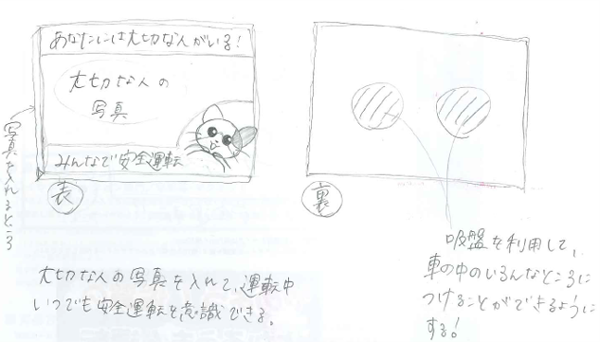 あなたには大切な人がいる！
大切な人の
写真
みんなで安全運転
写真を入れるところ
表
裏
大切な人の写真を入れて、運転中
いつでも安全運転を意識できる。
吸盤を利用して、
車の中のいろんなところに
つけることができるように
する！